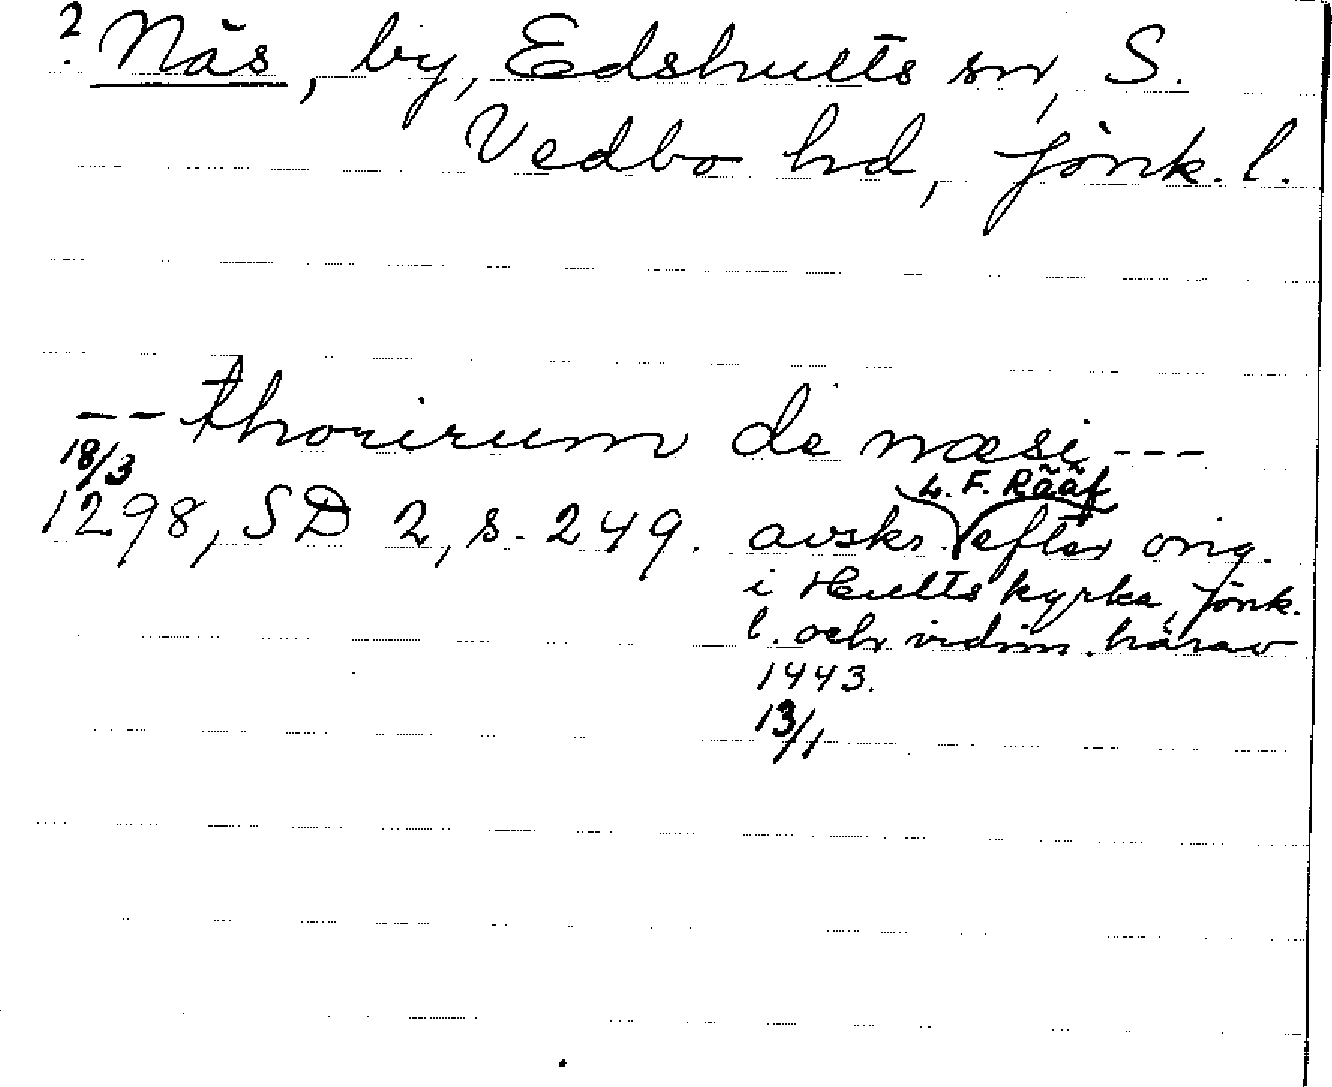 ? Näs, by, Edshults sn, S.
Vedbo hd, Jönk. l.
-- thorirum de næsi ---
18/3
1298, SD 2, s. 249. avskr. L. F. Rääf efter orig.
i Hults kyrka, Jönk.
l. och vidim. härav
1443.
13/1